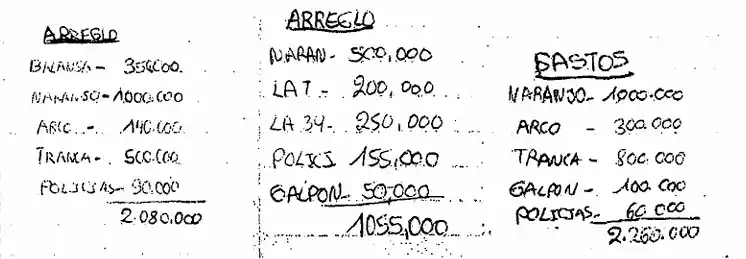 ARREGLO
BALANSA - 350.000
NARANJO - 1.000.000
ARCO - 140.000
TRANCA - 500.000
POLICIAS - 90.000
2.080.000
ARREGLO
NARAN - 500,000
LA T - 200,000
LA 34 - 250,000
POLICS 155,000
GALPON - 50,000
1055,000
GASTOS
NARANJO - 1.000.000
ARCO - 300.000
TRANCA - 800.000
GALPON - 100.000
POLICIAS - 60.000
2.260.000